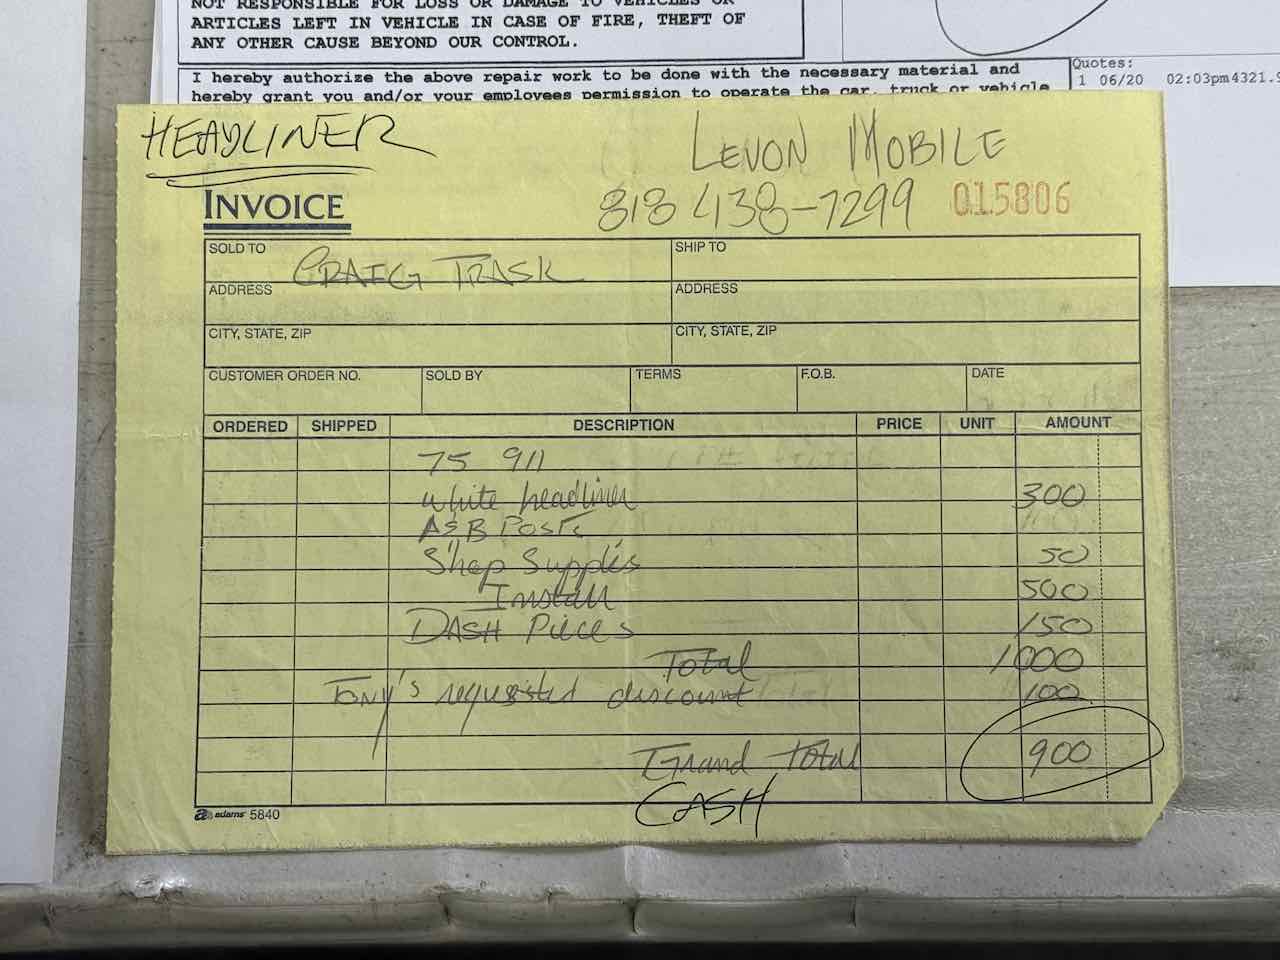 NOT RESPONSIBLE FOR LOSS OR DAMAGE TO VEHICLES OR
ARTICLES LEFT IN VEHICLE IN CASE OF FIRE, THEFT OF
ANY OTHER CAUSE BEYOND OUR CONTROL.
I hereby authorize the above repair work to be done with the necessary material and
hereby grant you and/or your employees permission to operate the car, truck or vehicle
Quotes:
1 06/20 02:03pm 4321.9
HEADLINER
LEVON MOBILE
818 438-7299
015806
INVOICE
SOLD TO CRAIG TRASK
SHIP TO
ADDRESS
ADDRESS
CITY, STATE, ZIP
CITY, STATE, ZIP
CUSTOMER ORDER NO. SOLD BY TERMS F.O.B. DATE
ORDERED SHIPPED DESCRIPTION PRICE UNIT AMOUNT
75 911
White headliner 300
A&B Posts
Shop Supplies 50
Install 500
DASH Pieces 150
Total 1000
Tony's requested discount 100
Grand Total 900
CASH
adams 5840